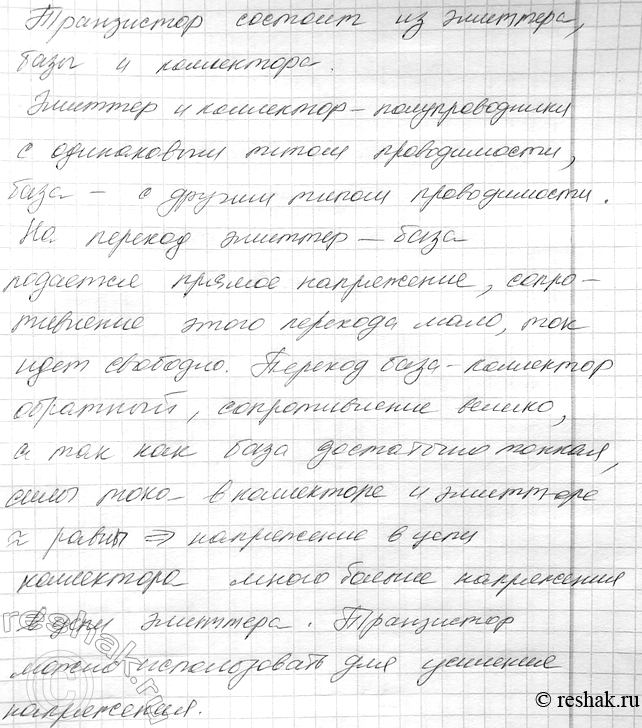 Транзистор состоит из эмиттера,
базы и коллектора.
Эмиттер и коллектор – полупроводники
с одинаковым типом проводимости,
база – с другим типом проводимости.
На переход эмиттер – база
подается прямое напряжение, сопро-
тивление этого перехода мало, ток
идет свободно. Переход база - коллектор
обратный, сопротивление велико,
а так как база достаточно тонкая,
силы тока в коллекторе и эмиттере
≈ равны ⇒ напряжение в цепи
коллектора много больше напряжения
в цепи эмиттера. Транзистор
можно использовать для усиления
напряжения.
reshak.ru
© reshak.ru